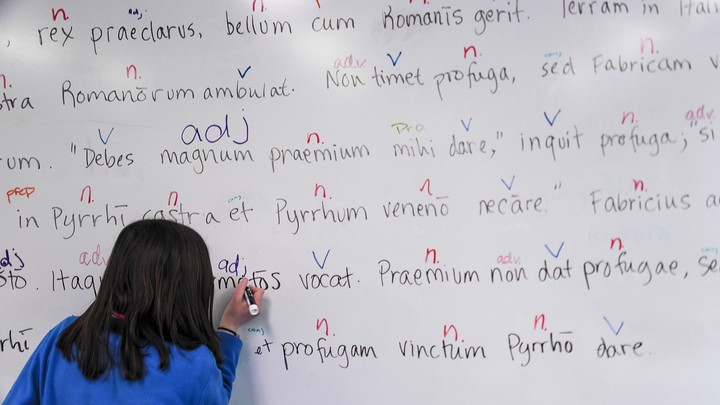 n. adj n.
, rex praeclarus, bellum cum Romanīs gerit. Terram in Itali
n. n. V adv V n. conj n.
stra Romanōrum ambulat. Non timet profuga, sed Fabricam v
V adj n. Pro V V n. adv.
um. "Debes magnum praemium mihi dare," inquit profuga; "si
prep n. n. conj n. n V n.
in Pyrrhī castra et Pyrrhum venenō necāre." Fabricius a
adj adv adj V n. adv. V n. conj
Itaq vocat. Praemium non dat profugae, se
conj n. n. n. V
rhī et profugam vinctum Pyrrhō dare.